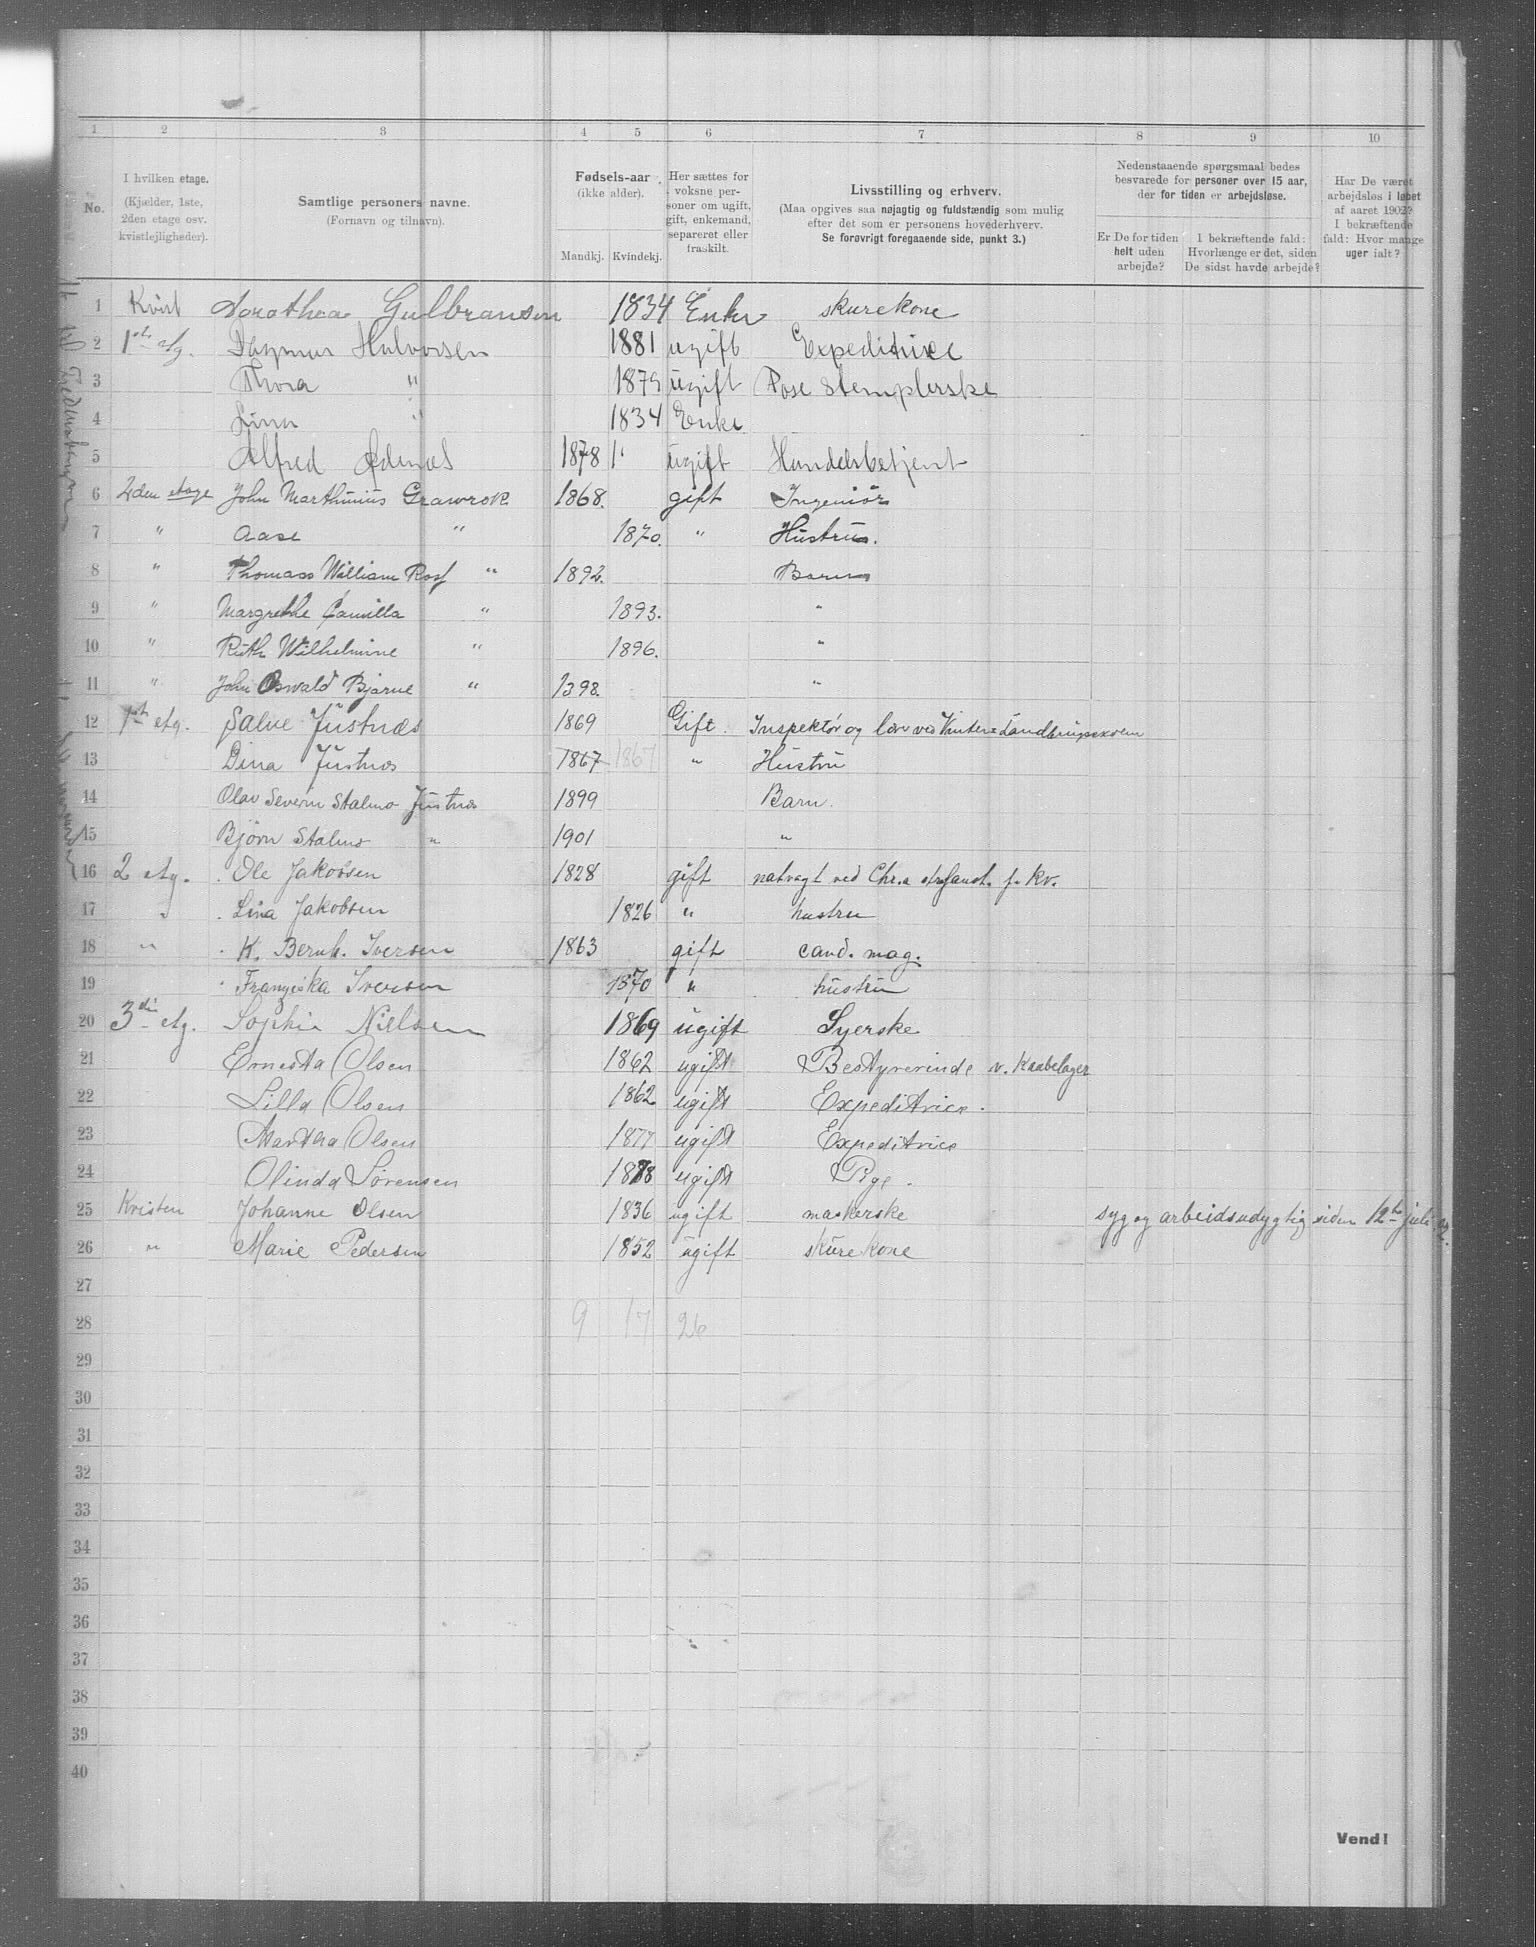 1 2 3 4 5 6 7 8 9 10
No.
I hvilken etage.
(Kjælder, 1ste,
2den etage osv.
kvistlejligheder).
Samtlige personers navne.
(Fornavn og tilnavn).
Fødsels-aar
(ikke alder).
Mandkj. Kvindekj.
Her sættes for
voksne per-
soner om ugift,
gift, enkemand,
separeret eller
fraskilt.
Livsstilling og erhverv.
(Maa opgives saa nøjagtig og fuldstændig som mulig
efter det som er personens hovederhverv.
Se forøvrigt foregaaende side, punkt 3.)
Nedenstaaende spørgsmaal bedes
besvarede for personer over 15 aar,
der for tiden er arbejdsløse.
Er De for tiden
helt uden
arbejde?
I bekræftende fald:
Hvorlænge er det, siden
De sidst havde arbejde?
Har De været
arbejdsløs i løbet
af aaret 1902?
I bekræftende
fald: Hvor mange
uger ialt?
1 Kvist Dorothea Gulbransen 1834 Enke skurekone
2 1ste etg. Dagmar Halvorsen 1881 ugift Expeditrice
3 Thora " 1879 ugift Pose stemplerske
4 Lina " 1834 Enke
5 Alfred Ødenæs 1878 ugift Handelsbetjent
6 2den etage John Marthinius Grawrok 1868. gift Ingeniør
7 " Aase " 1870. " Hustru.
8 " Thomass William Rosf " 1892. Barn
9 " Margrethe Camilla " 1893. "
10 " Ruth Wilhelmine " 1896. "
11 " John Oswald Bjarne " 1898. "
12 1st etg. Salve Justnæs 1869 Gift. Inspektør og lærer ved Vinter= Landbrugsskolen
13 Dina Justnæs 1867 1867 " Hustru
14 Olav Severin Stalmo Justnæs 1899 Barn.
15 Bjørn Stalmo " 1901 "
16 2 etg. Ole Jakobsen 1828 gift natvagt ved Chr.a strafanst. f. kv.
17 " Lina Jakobsen 1826 " hustru
18 " K. Bernh. Iversen 1863 gift cand. mag.
19 Franziska Iversen 1870 " hustru
20 3die etg. Sophie Nielsen 1869 ugift Syerske
21 Ernesta Olsen 1862 ugift Bestyrerinde v. Kaabelager
22 Lilla Olsen 1862 ugift Expeditrice.
23 Martha Olsen 1877 ugift Expeditrice
24 Olinda Sørensen 1878 ugift Pige.
25 Kvisten Johanne Olsen 1836 ugift maskerske syg og arbeidsudygtig siden 12te juli 02.
26 " Marie Pedersen 1852 ugift skurekone
27
28 9 17 26
29
30
31
32
33
34
35
36
37
38
39
40
Vend!